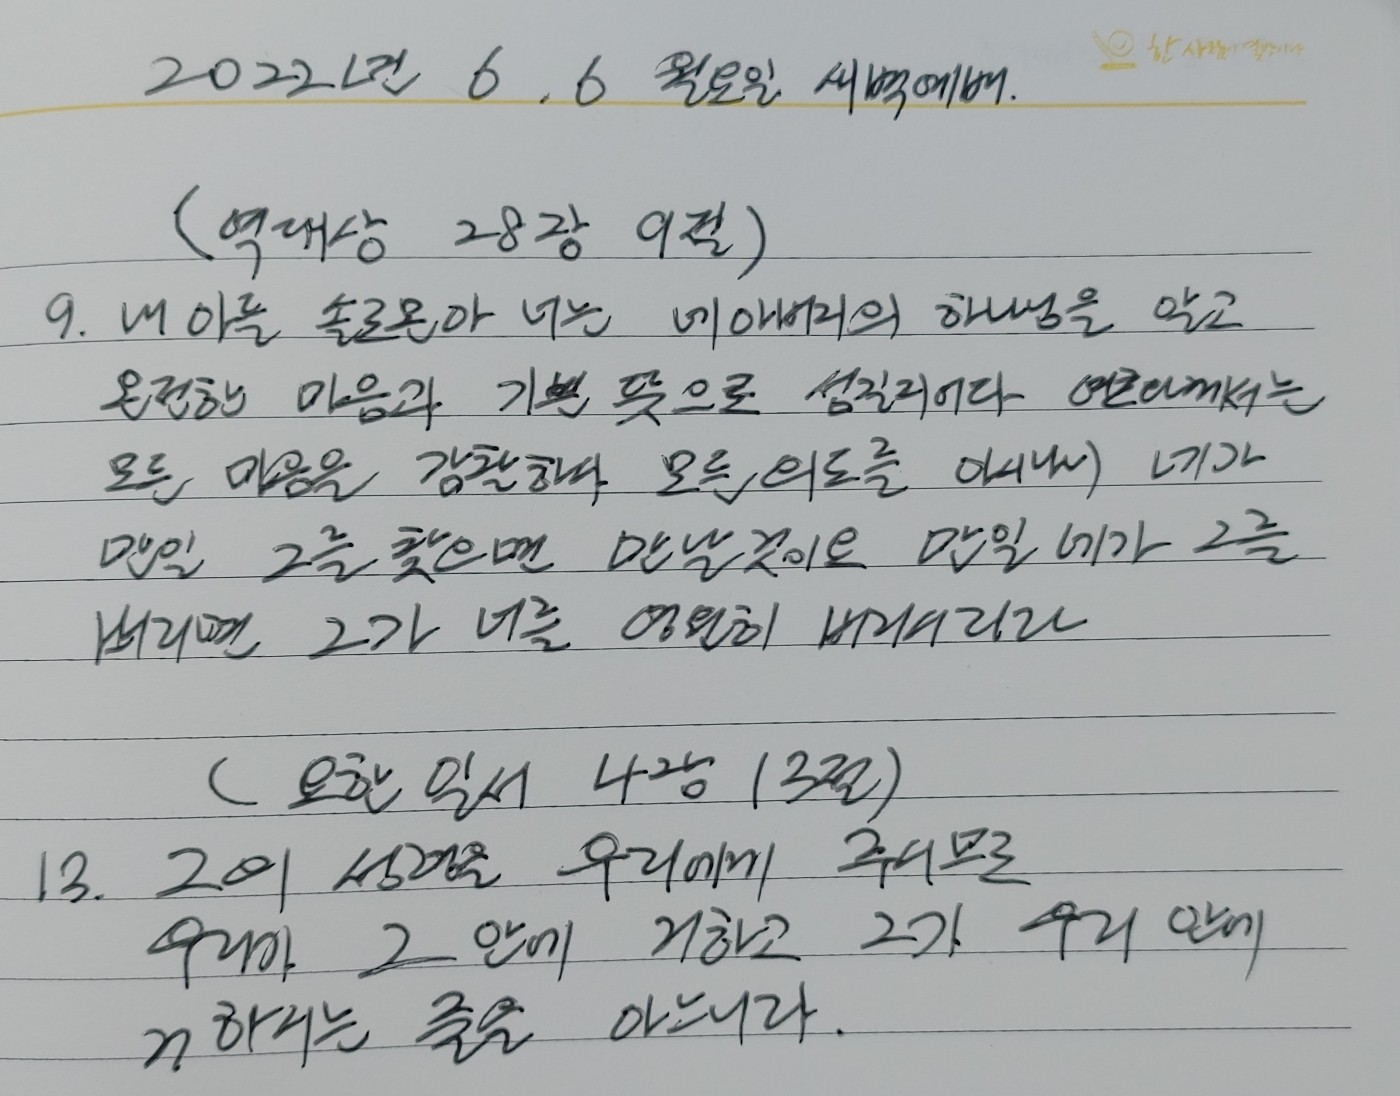 한 사람이
2022년 6.6 월요일 새벽예배.
(역대상 28장 9절)
9. 내 아들 솔로몬아 너는 네 아버지의 하나님을 알고
온전한 마음과 기쁜 뜻으로 섬길지어다 여호와께서는
모든 마음을 감찰하사 모든 의도를 아시나니 네가
만일 그를 찾으면 만날것이요 만일 네가 그를
버리면 그가 너를 영원히 버리시리라
(요한 일서 4장 13절)
13. 그의 성령을 우리에게 주시므로
우리가 그 안에 거하고 그가 우리 안에
거하시는 줄을 아느니라.